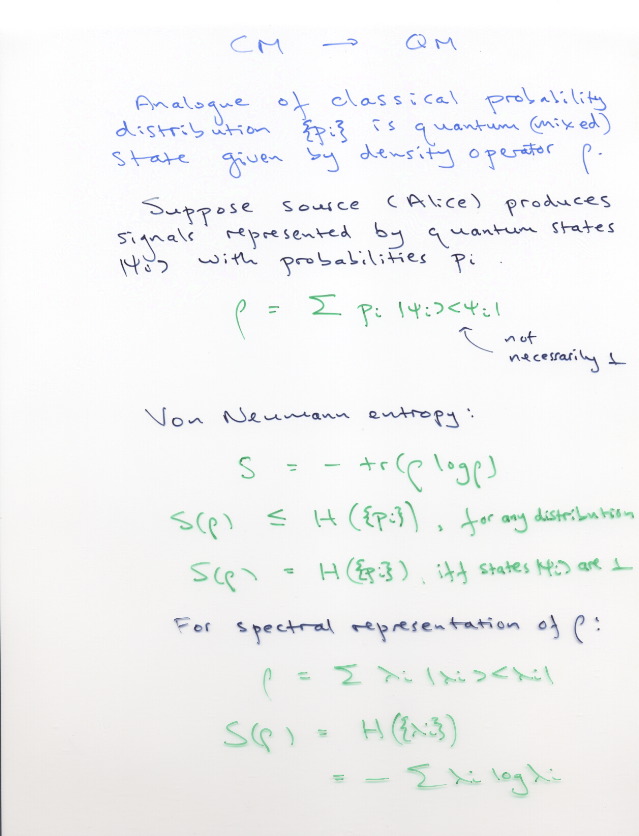 CM → QM
Analogue of classical probability
distribution {pi} is quantum (mixed)
state given by density operator ρ.
Suppose source (Alice) produces
signals represented by quantum states
|ψi> with probabilities pi.
ρ = Σ pi |ψi><ψi|
not
necessarily ⊥
Von Neumann entropy:
S = - tr(ρ logρ)
S(ρ) ≤ H({pi}), for any distribution
S(ρ) = H({pi}), iff states |ψi> are ⊥
For spectral representation of ρ:
ρ = Σ λi |λi><λi|
S(ρ) = H({λi})
= - Σ λi log λi